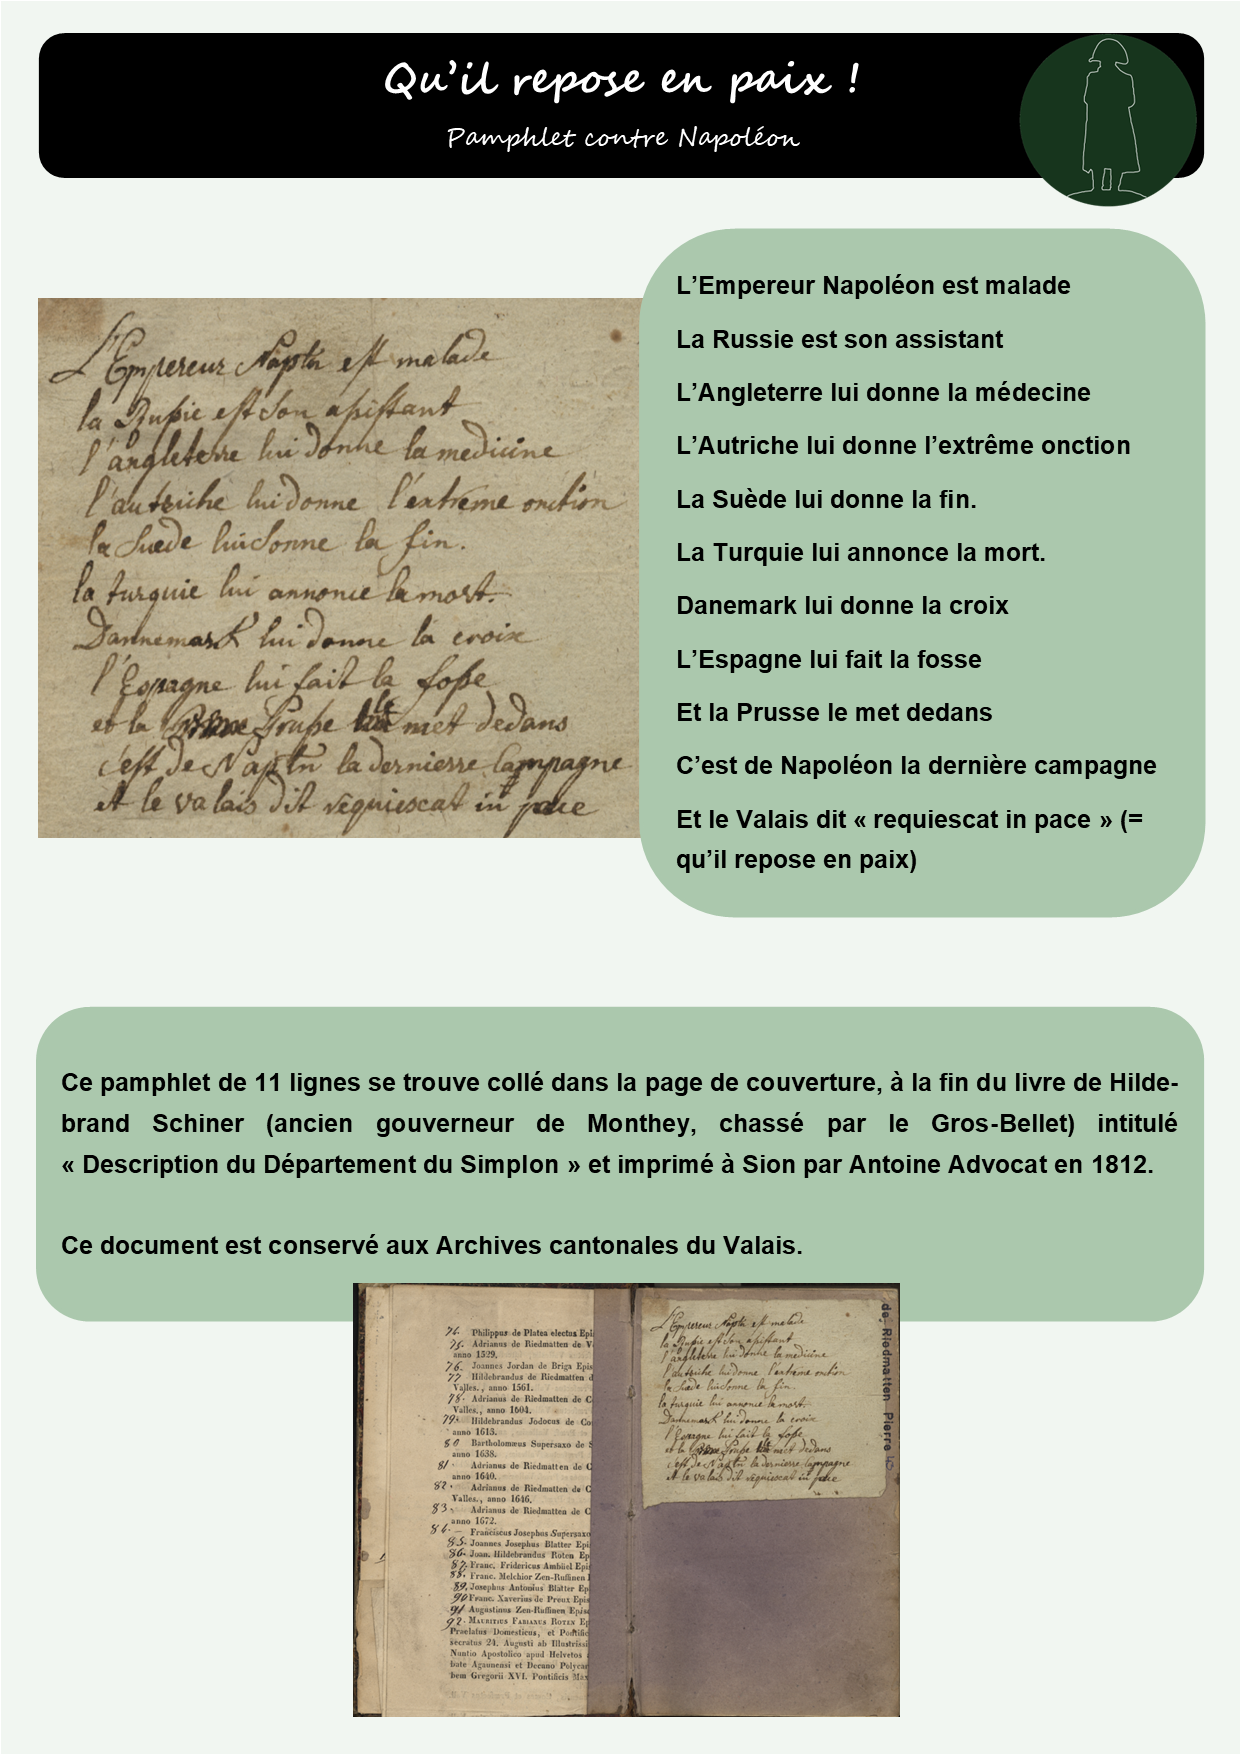 Qu’il repose en paix !
Pamphlet contre Napoléon
L'Empereur Naptn est malade
la Russie est son assistant
l'angleterre lui donne la medicine
l'autriche lui donne l'extrême onction
la Suede lui donne la fin.
la turquie lui annonce la mort.
Dannemark lui donne la croix
l'Espagne lui fait la fosse
et la Prusse le met dedans
c'est de Naptn la dernierre Campagne
et le valais dit requiescat in pace
L’Empereur Napoléon est malade
La Russie est son assistant
L’Angleterre lui donne la médecine
L’Autriche lui donne l’extrême onction
La Suède lui donne la fin.
La Turquie lui annonce la mort.
Danemark lui donne la croix
L’Espagne lui fait la fosse
Et la Prusse le met dedans
C’est de Napoléon la dernière campagne
Et le Valais dit « requiescat in pace » (=
qu’il repose en paix)
Ce pamphlet de 11 lignes se trouve collé dans la page de couverture, à la fin du livre de Hilde-
brand Schiner (ancien gouverneur de Monthey, chassé par le Gros-Bellet) intitulé
« Description du Département du Simplon » et imprimé à Sion par Antoine Advocat en 1812.
Ce document est conservé aux Archives cantonales du Valais.
Philippus de Platea electus Epi
75. Adrianus de Riedmatten de V
anno 1529.
76. Joannes Jordan de Briga Epis
77 Hildebrandus de Riedmatten d
Valles., anno 1561.
78. Adrianus de Riedmatten de C
Valles., anno 1604.
79. Hildebrandus Jodocus de Co
anno 1613.
80 Bartholomæus Supersaxo de S
anno 1638.
81. Adrianus de Riedmatten de C
anno 1640.
82. Adrianus de Riedmatten de C
Valles., anno 1646.
83. Adrianus de Riedmatten de C
anno 1672.
84. — Franciscus Josephus Supersaxo
85. Joannes Josephus Blatter Epi
86. Joan. Hildebrandus Roten Ep
87. Franc. Fridericus Ambüel Epi
88. Franc. Melchior Zen-Ruffinen
89. Josephus Antonius Blatter Ep
90 Franc. Xaverius de Preux Epis
91 Augustinus Zen-Ruffinen Epis
92. Mauritius Fabianus Roten Ep
Praelatus Domesticus, et Pontific
secratus 24. Augusti ab Illustrissi
Nuntio Apostolico apud Helvetos
bate Agaunensi et Decano Polycar
bem Gregorii XVI. Pontificis Max
L'Empereur Naptn est malade
la Russie est son assistant
l'angleterre lui donne la medicine
l'autriche lui donne l'extrême onction
la Suede lui donne la fin.
la turquie lui annonce la mort.
Dannemark lui donne la croix
l'Espagne lui fait la fosse
et la Prusse le met dedans
c'est de Naptn la dernierre Campagne
et le valais dit requiescat in pace
de Riedmatten Pierre